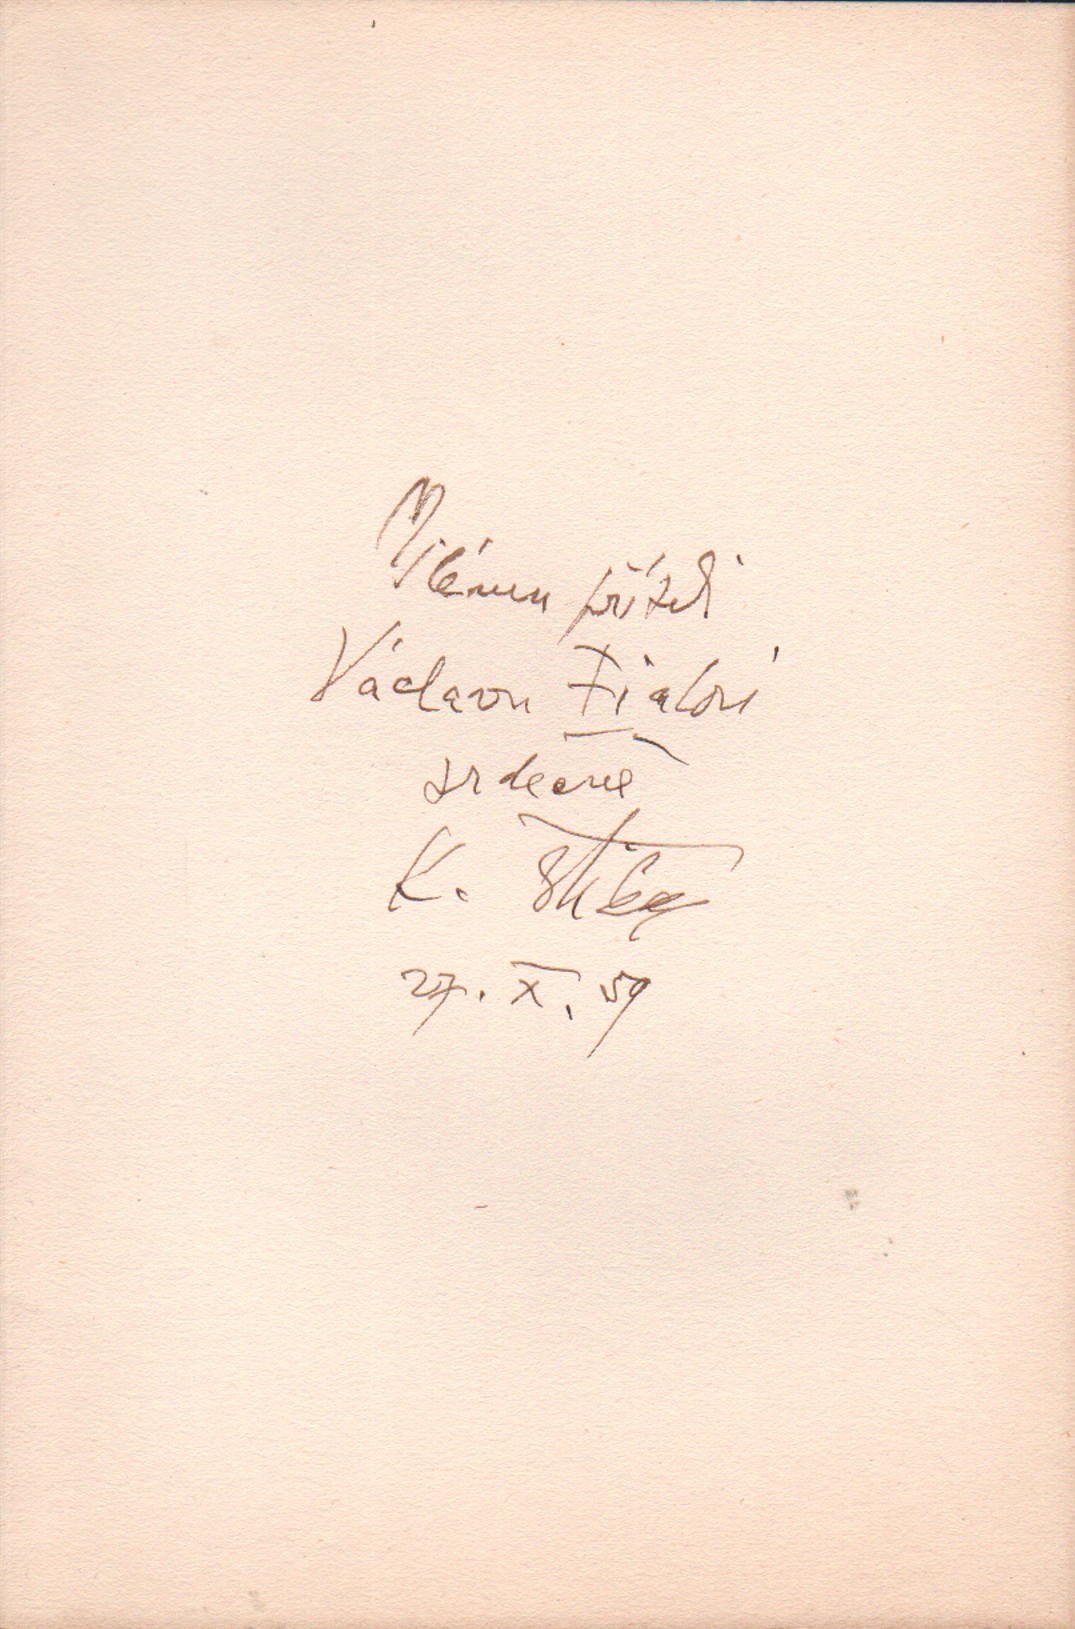 Milému příteli
Václavu Fialovi
srdečně
K. Štika
27. X. 59